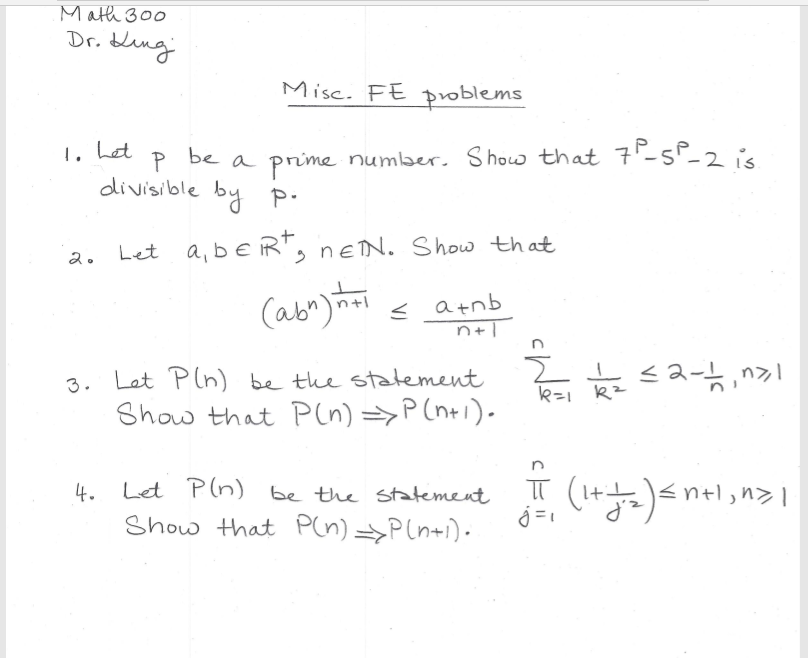 Math 300
Dr. King
Misc. FE problems
1. Let p be a prime number. Show that 7^p-5^p-2 is
divisible by p.
2. Let a,b∈ℝ⁺, n∈ℕ. Show that
(abⁿ)^(1/(n+1)) ≤ (a+nb)/(n+1)
3. Let P(n) be the statement ∑_{k=1}^{n} 1/k² ≤ 2-1/n, n≥1
Show that P(n)⇒P(n+1).
4. Let P(n) be the statement ∏_{j=1}^{n} (1+1/j²) ≤ n+1, n≥1
Show that P(n)⇒P(n+1).